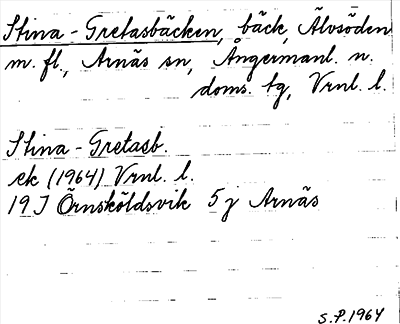 Stina-Gretasbäcken, bäck, Älvsöden
m. fl., Arnäs sn, Ångermanl. n.
doms. tg, Vrnl. l.
Stina-Gretasb.
ek (1964) Vrnl. l.
19 J Örnsköldsvik 5 j Arnäs
S.P. 1964